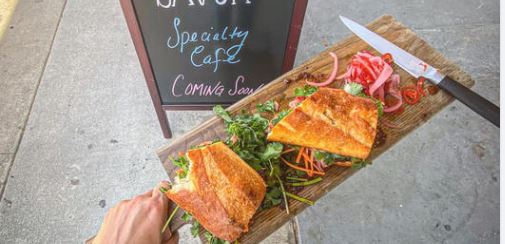 Specialty
Café
COMING SOON